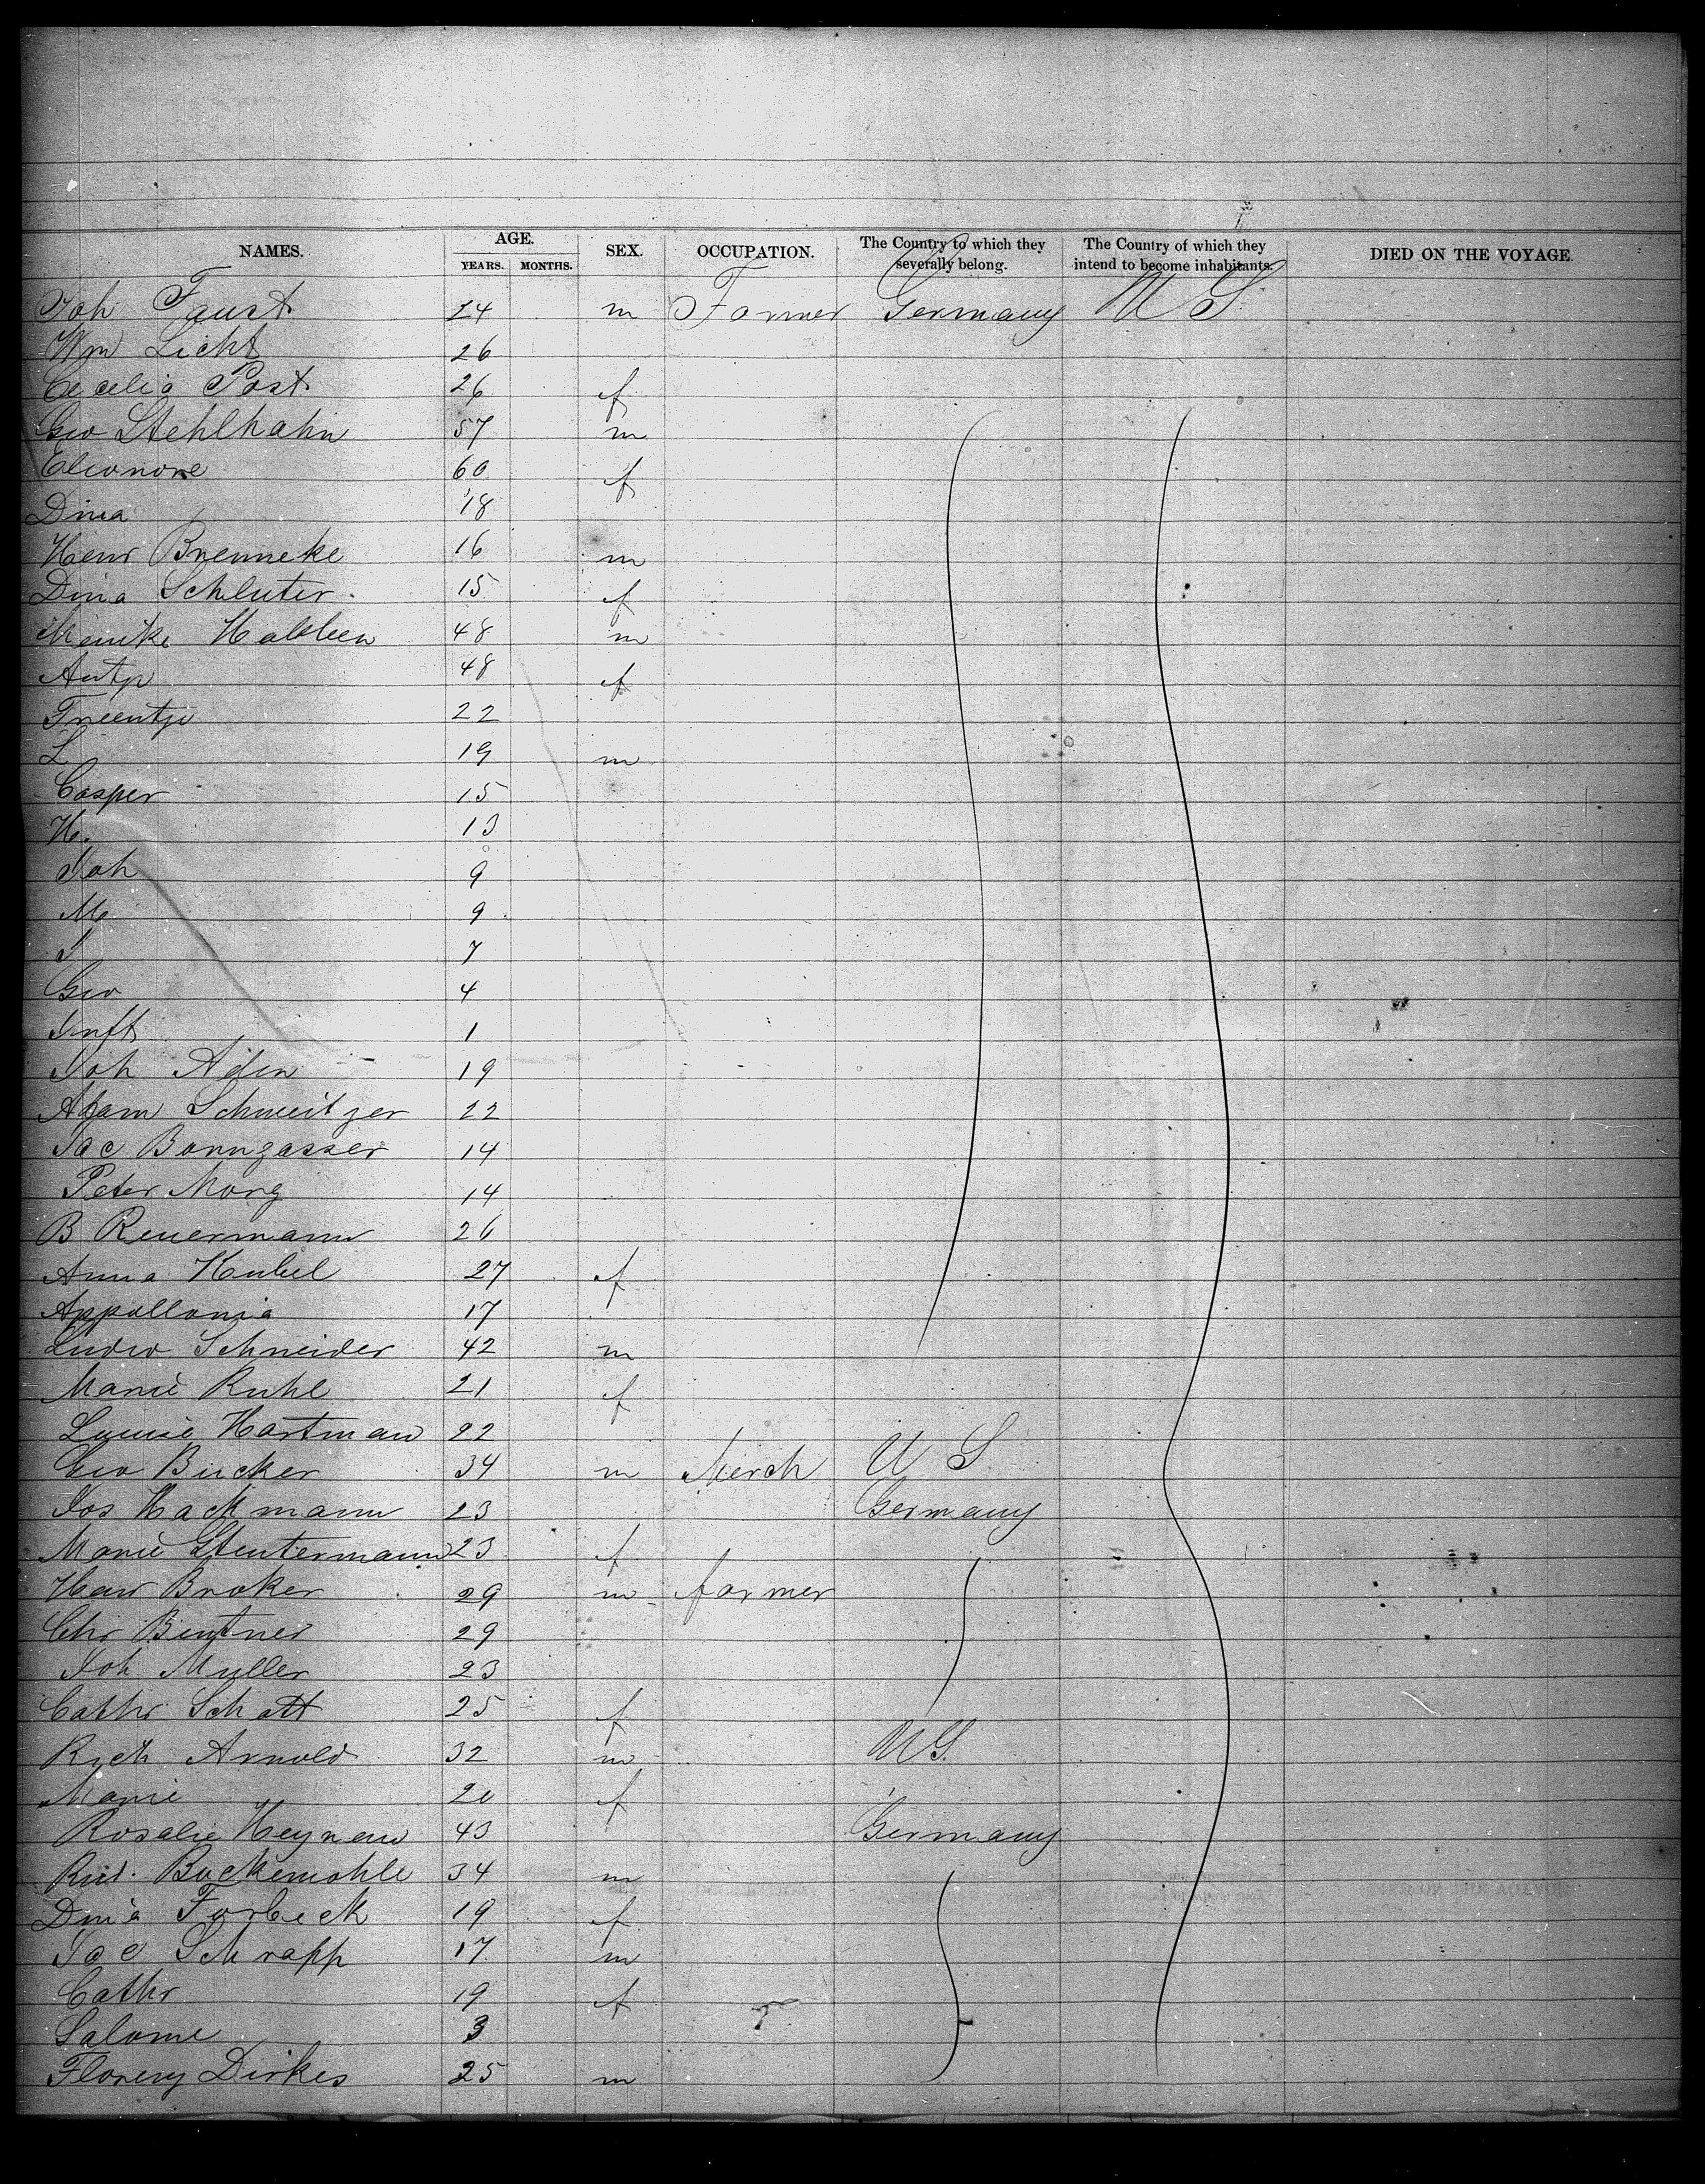 NAMES. AGE. SEX. OCCUPATION. The Country to which they severally belong. The Country of which they intend to become inhabitants. DIED ON THE VOYAGE.
YEARS. MONTHS.
Joh Faust 24 m Farmer Germany U S
Wm Licht 26
Cecelia Post 26 f
Geo Stehlhahn 57 m
Eleonore 60 f
Dina 18
Henr Brenneke 16 m
Dina Schluter 15 f
48 m
Antje 48 f
Treentje 22
L 19 m
Casper 15
H. 13
Joh 9
M 9
J 7
Geo 4
Inft 1
Joh Aden 19
Adam Schweitzer 22
Jac Bonngasser 14
Peter Morg 14
B Reuermann 26
Anna Kubel 27 f
Appollonia 17
Ludw Schneider 42 m
Marie Ruhl 21 f
Louise Hartman 22
Geo Bucker 34 m Merch U S
Jos Hackmann 23 Germany
Marie Steutermann 23 f
Henr Broker 29 m farmer
Chr Bintner 29
Joh Muller 23
Cathr Schott 25 f
Rich Arnold 32 m U S.
Marie 20 f
Rosalie Heyman 43 Germany
Rud. Bockemohle 34 m
Dina Forbeck 19 f
Jac Schrapp 17 m
Cathr 19 f
Salome 3
Florenz Dirkes 25 m